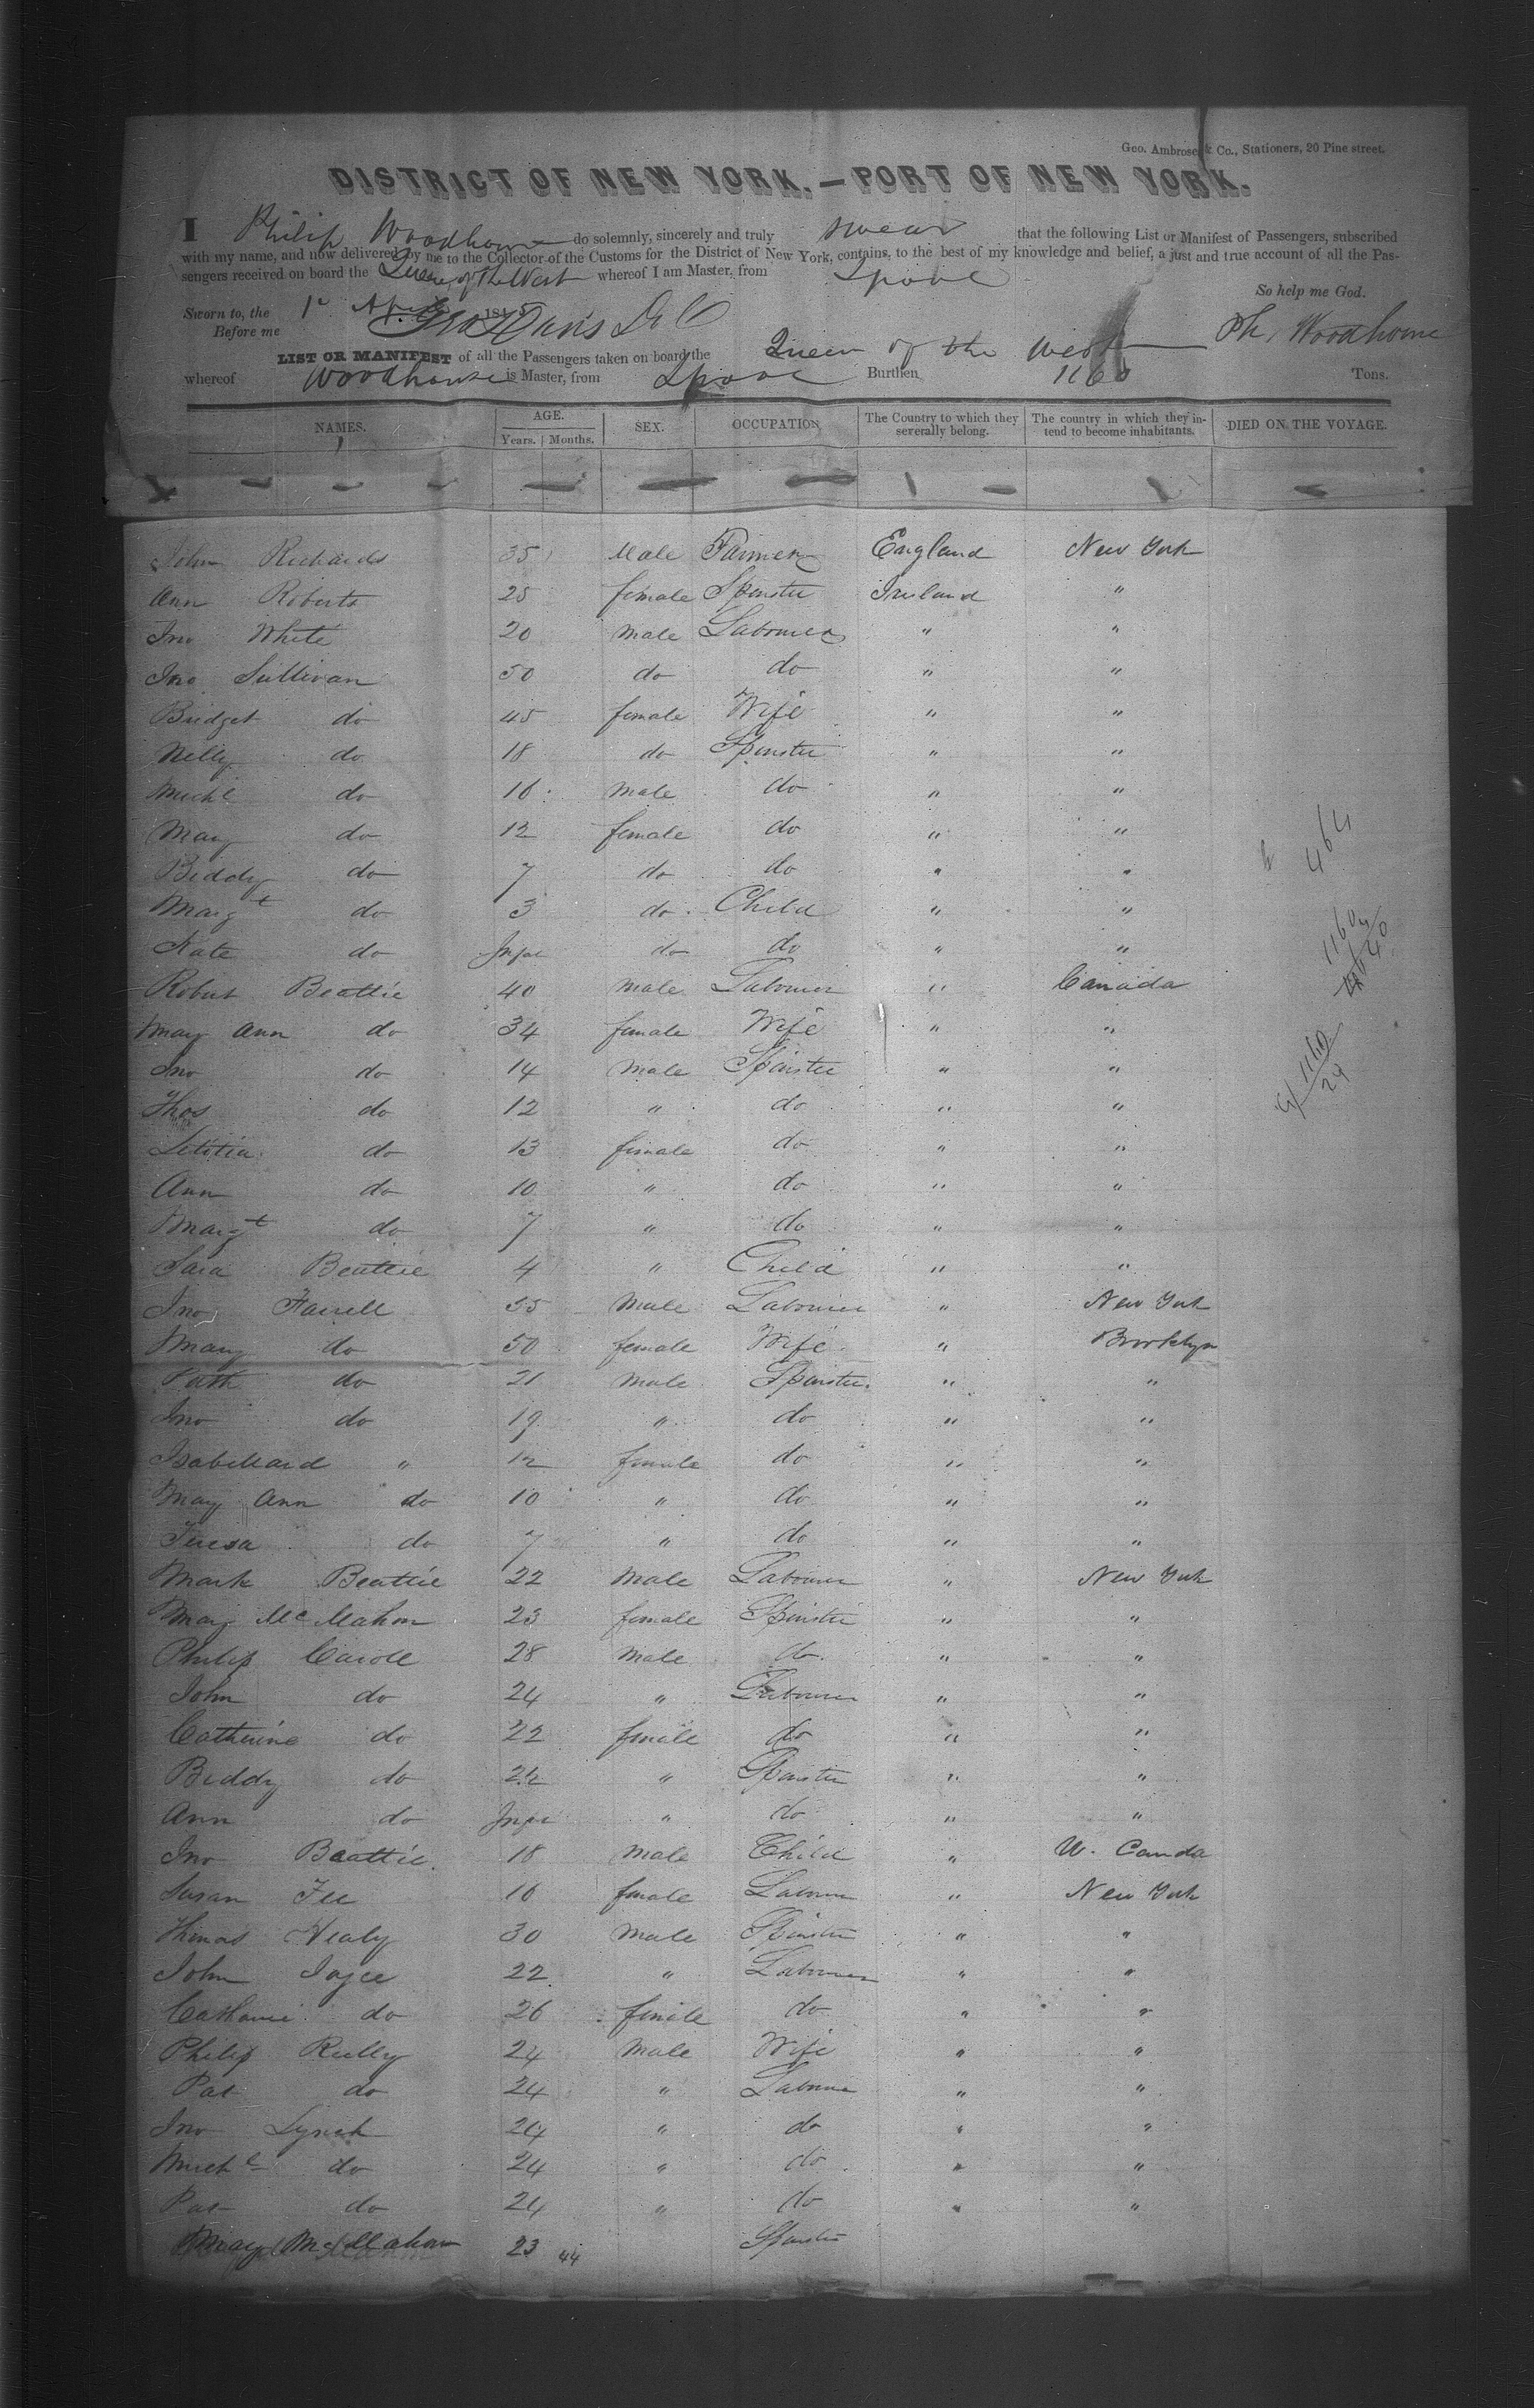 Geo. Ambrose & Co., Stationers, 20 Pine street.
DISTRICT OF NEW YORK.—PORT OF NEW YORK.
I Philip Woodhouse do solemnly, sincerely and truly swear that the following List or Manifest of Passengers, subscribed
with my name, and now delivered by me to the Collector of the Customs for the District of New York, contains, to the best of my knowledge and belief, a just and true account of all the Pas-
sengers received on board the Queen of the West whereof I am Master, from Lpool
So help me God.
Sworn to, the 1st April 185
Before me Ph. Woodhouse
LIST OR MANIFEST of all the Passengers taken on board the Queen of the West
whereof Woodhouse is Master, from Lpool Burthen 1160 Tons.
NAMES. AGE. Years. Months. SEX. OCCUPATION The Country to which they severally belong. The country in which they intend to become inhabitants. DIED ON THE VOYAGE.
John Richards 35 Male Farmer England New York
Ann Roberts 25 female Spinster Ireland "
Jno White 20 male Labourer " "
Jno Sullivan 50 do do " "
Bridget do 45 female Wife " "
Nelly do 18 do Spinster " "
Michl do 16 male do " "
Mary do 12 female do " "
Biddy do 7 do do " "
Margt do 3 do Child " "
Kate do Infe do do " "
Robert Beattie 40 male Labourer " Canada
Mary Ann do 34 female Wife " "
Jno do 14 male Spinster " "
Thos do 12 " do " "
Letitia do 13 female do " "
Ann do 10 " do " "
Margt do 7 " do " "
Sara Beattie 4 " Child " "
Jno Farrell 55 Male Labourer " New York
Mary do 50 female Wife " Brooklyn
Patk do 21 male Spinster " "
Jno do 19 " do " "
" 12 female do " "
Mary Ann do 10 " do " "
Teresa do 7 " do " "
Mark Beattie 22 Male Labourer " New York
Mary McMahon 23 female Spinster " "
Philip Caroll 28 male do " "
John do 24 " Labourer " "
Catherine do 22 female do " "
Biddy do 22 " Spinster " "
Ann do Infe " do " "
Jno Beattie 18 male Child " W. Canda
Susan Fee 16 female Labourer " New York
Thomas Healy 30 male Spinster " "
John Joyce 22 " Labourer " "
Catherine do 26 female do " "
Philip Reilly 24 Male Wife " "
Pat do 24 " Labourer " "
Jno Lynch 24 " do " "
Michl do 24 " do " "
Pat do 24 " do " "
Mary McMahon 23 44 Spinster
464
1160
1160
29